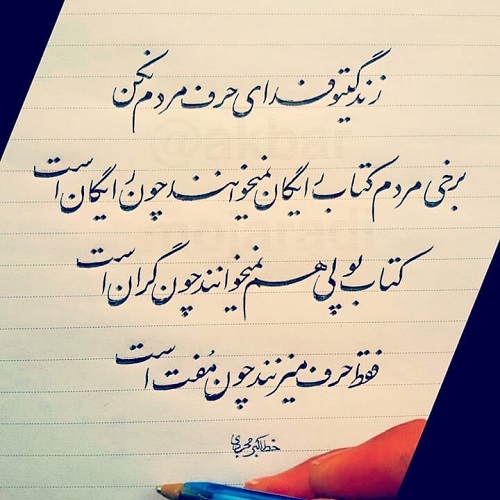 @akbar
زندگیتو فدای حرف مردم نکن
برخی مردم کتاب رایگان نمیخوانند چون رایگان است
کتاب پولی هم نمیخوانند چون گران است
فقط حرف میزنند چون مُفت است
خط اکبر